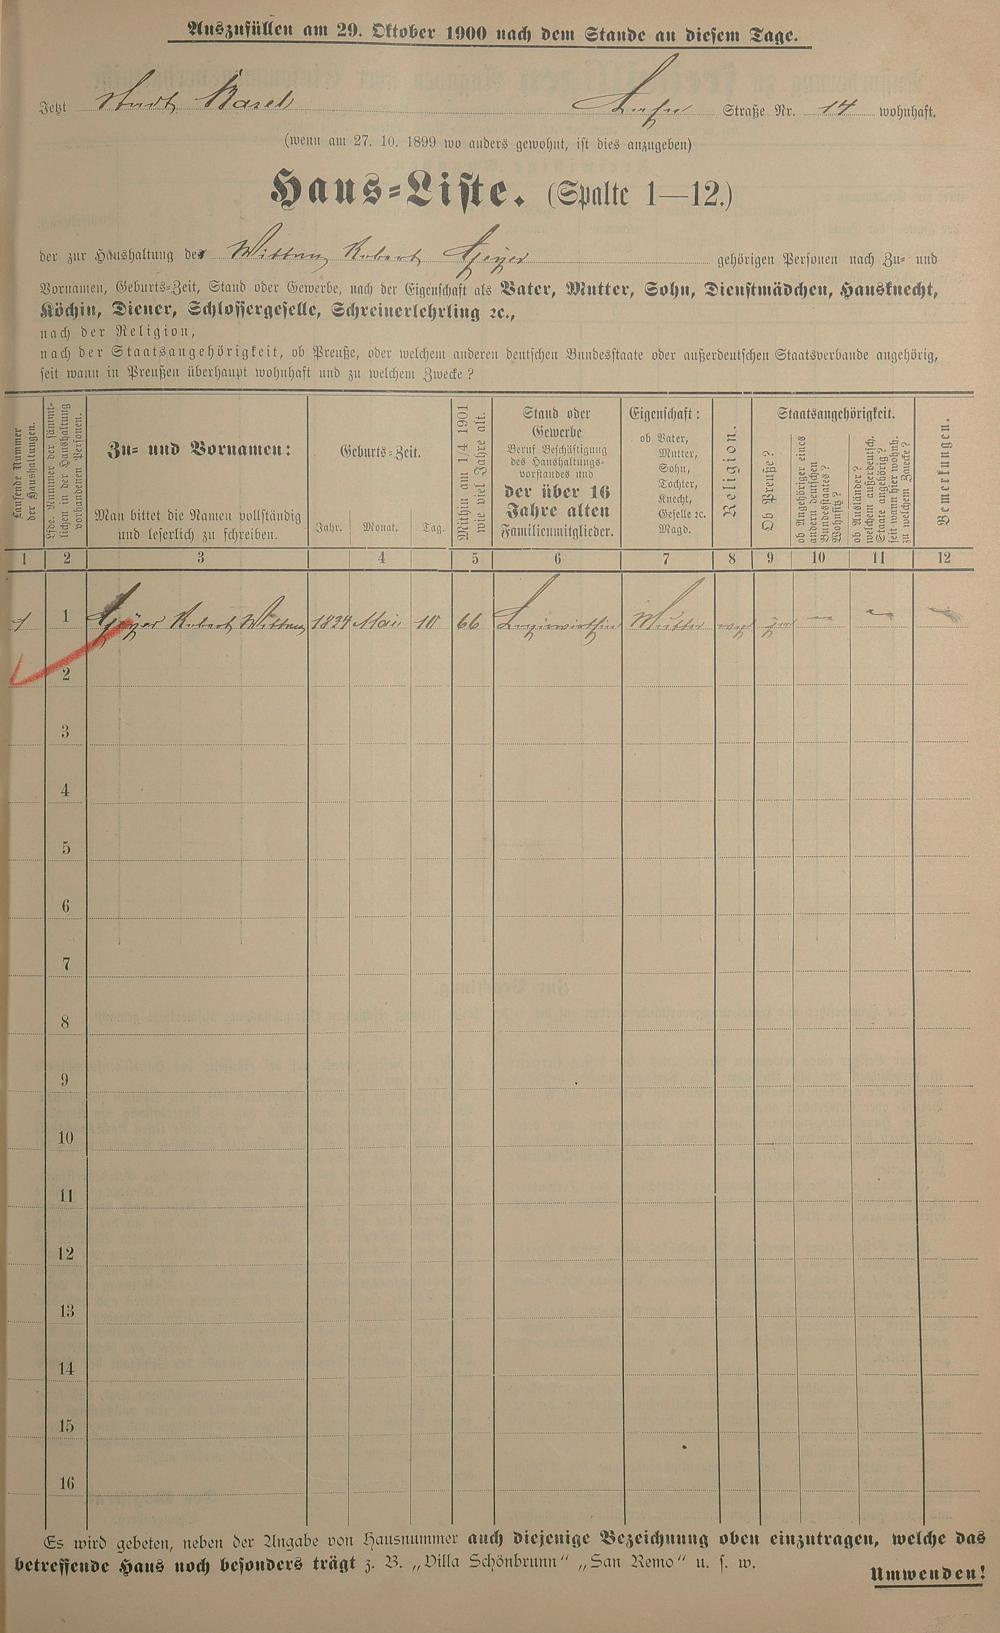 Auszufüllen am 29. Oktober 1900 nach dem Stande an diesem Tage.
Jetzt Stadt Basel Straße Nr. 14 wohnhaft.
(wenn am 27. 10. 1899 wo anders gewohnt, ist dies anzugeben)
Haus=Liste. (Spalte 1—12.)
der zur Haushaltung der Wittwe Robert Geyer gehörigen Personen nach Zu- und
Vornamen, Geburts-Zeit, Stand oder Gewerbe, nach der Eigenschaft als Vater, Mutter, Sohn, Dienstmädchen, Hausknecht,
Köchin, Diener, Schlossergeselle, Schreinerlehrling ꝛc.,
nach der Religion,
nach der Staatsangehörigkeit, ob Preuße, oder welchem anderen deutschen Bundesstaate oder außerdeutschen Staatsverbande angehörig,
seit wann in Preußen überhaupt wohnhaft und zu welchem Zwecke?
Laufende Nummer
der Haushaltungen.
Lfde. Nummer der sämmt-
lichen in der Haushaltung
vorhandenen Personen.
Zu- und Vornamen:
Man bittet die Namen vollständig
und leserlich zu schreiben.
Geburts-Zeit.
Jahr. Monat. Tag.
Mithin am 1/4 1901
wie viel Jahre alt.
Stand oder
Gewerbe
Beruf Beschäftigung
des Haushaltungs-
vorstandes und
der über 16
Jahre alten
Familienmitglieder.
Eigenschaft:
ob Vater,
Mutter,
Sohn,
Tochter,
Knecht,
Geselle ꝛc.
Magd.
Religion.
Staatsangehörigkeit.
Ob Preuße?
ob Angehöriger eines
andern deutschen
Bundesstaates?
Wohnsitz?
ob Ausländer?
welchem außerdeutsch.
Staate angehörig?
seit wann hier wohnh.
zu welchem Zwecke?
Bemerkungen.
1 2 3 4 5 6 7 8 9 10 11 12
1 1 Geyer Robert Wittwe 1834 Mai 10 66 Logiswirthin Mutter — — —
2
3
4
5
6
7
8
9
10
11
12
13
14
15
16
Es wird gebeten, neben der Angabe von Hausnummer auch diejenige Bezeichnung oben einzutragen, welche das
betreffende Haus noch besonders trägt z. B. „Villa Schönbrunn" „San Remo" u. s. w.
Umwenden!